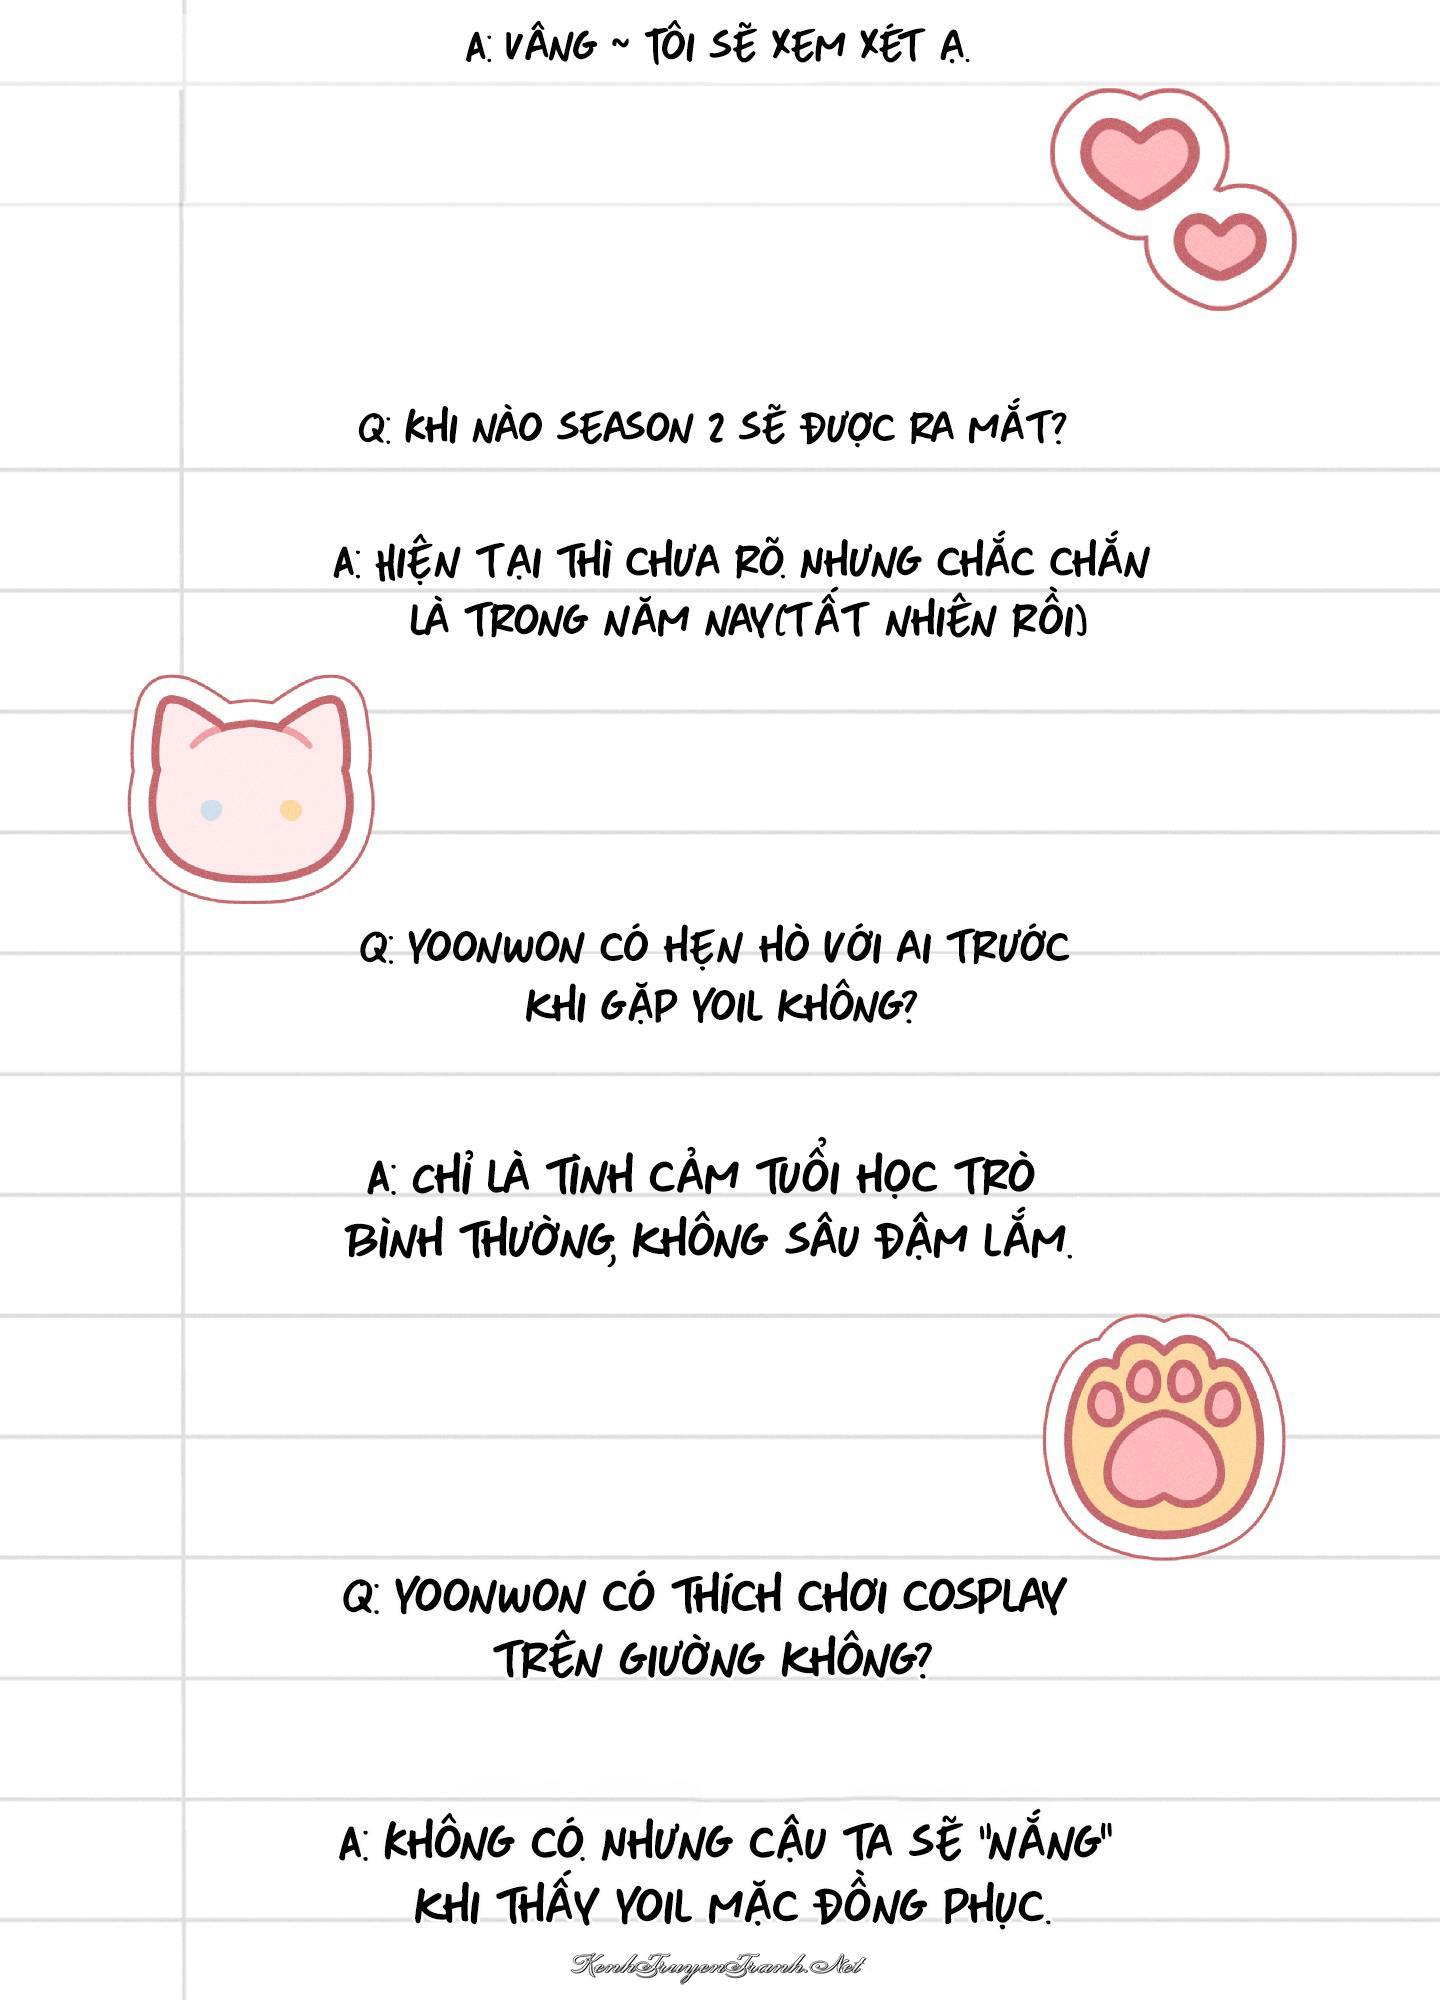 A: VÂNG ~ TÔI SẼ XEM XÉT Ạ.
Q: KHI NÀO SEASON 2 SẼ ĐƯỢC RA MẮT?
A: HIỆN TẠI THÌ CHƯA RÕ. NHƯNG CHẮC CHẮN
LÀ TRONG NĂM NAY(TẤT NHIÊN RỒI)
Q: YOONWON CÓ HẸN HÒ VỚI AI TRƯỚC
KHI GẶP YOIL KHÔNG?
A: CHỈ LÀ TÌNH CẢM TUỔI HỌC TRÒ
BÌNH THƯỜNG, KHÔNG SÂU ĐẬM LẮM.
Q: YOONWON CÓ THÍCH CHƠI COSPLAY
TRÊN GIƯỜNG KHÔNG?
A: KHÔNG CÓ. NHƯNG CẬU TA SẼ "NẮNG"
KHI THẤY YOIL MẶC ĐỒNG PHỤC.
KenhTruyenTranh.Net